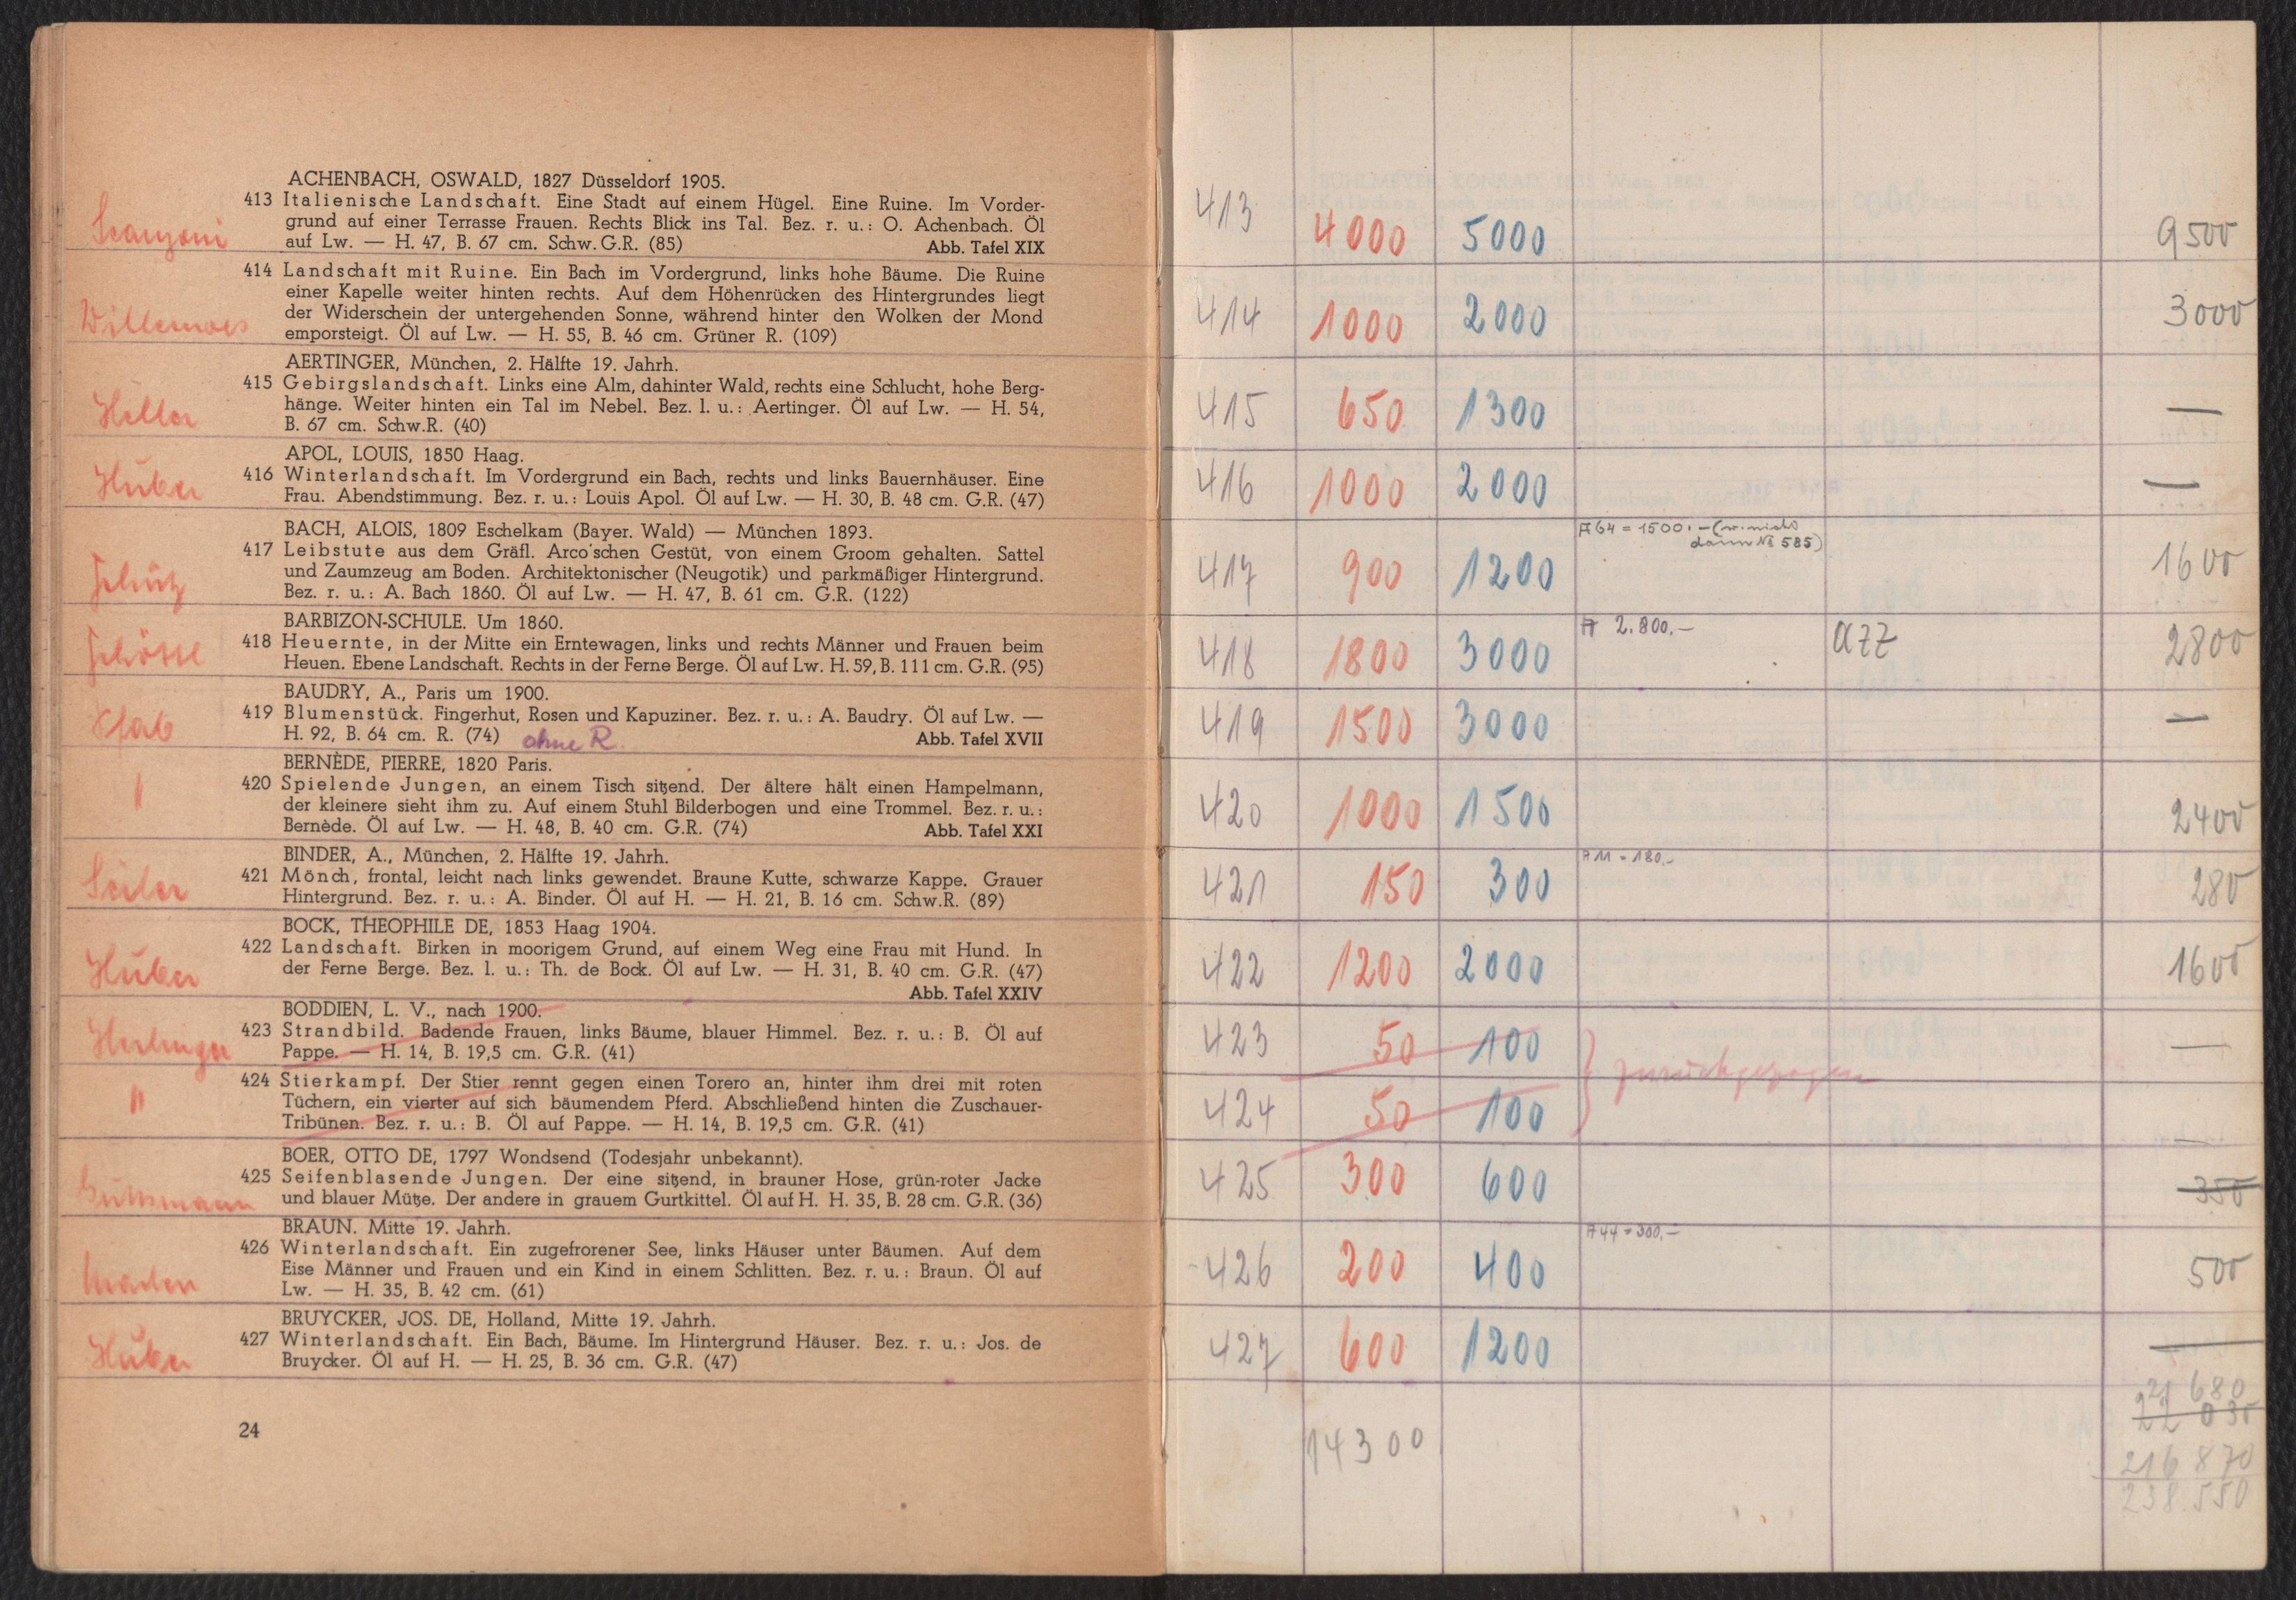 ACHENBACH, OSWALD, 1827 Düsseldorf 1905.
413 Italienische Landschaft. Eine Stadt auf einem Hügel. Eine Ruine. Im Vorder-
grund auf einer Terrasse Frauen. Rechts Blick ins Tal. Bez. r. u.: O. Achenbach. Öl
Scanzoni auf Lw. — H. 47, B. 67 cm. Schw. G.R. (85) Abb. Tafel XIX
414 Landschaft mit Ruine. Ein Bach im Vordergrund, links hohe Bäume. Die Ruine
einer Kapelle weiter hinten rechts. Auf dem Höhenrücken des Hintergrundes liegt
Willemoes der Widerschein der untergehenden Sonne, während hinter den Wolken der Mond
emporsteigt. Öl auf Lw. — H. 55, B. 46 cm. Grüner R. (109)
AERTINGER, München, 2. Hälfte 19. Jahrh.
415 Gebirgslandschaft. Links eine Alm, dahinter Wald, rechts eine Schlucht, hohe Berg-
Heller hänge. Weiter hinten ein Tal im Nebel. Bez. l. u.: Aertinger. Öl auf Lw. — H. 54,
B. 67 cm. Schw.R. (40)
APOL, LOUIS, 1850 Haag.
416 Winterlandschaft. Im Vordergrund ein Bach, rechts und links Bauernhäuser. Eine
Huber Frau. Abendstimmung. Bez. r. u.: Louis Apol. Öl auf Lw. — H. 30, B. 48 cm. G.R. (47)
BACH, ALOIS, 1809 Eschelkam (Bayer. Wald) — München 1893.
417 Leibstute aus dem Gräfl. Arco'schen Gestüt, von einem Groom gehalten. Sattel
Schütz und Zaumzeug am Boden. Architektonischer (Neugotik) und parkmäßiger Hintergrund.
Bez. r. u.: A. Bach 1860. Öl auf Lw. — H. 47, B. 61 cm. G.R. (122)
BARBIZON-SCHULE. Um 1860.
418 Heuernte, in der Mitte ein Erntewagen, links und rechts Männer und Frauen beim
Heuen. Ebene Landschaft. Rechts in der Ferne Berge. Öl auf Lw. H. 59, B. 111 cm. G.R. (95)
BAUDRY, A., Paris um 1900.
419 Blumenstück. Fingerhut, Rosen und Kapuziner. Bez. r. u.: A. Baudry. Öl auf Lw. —
H. 92, B. 64 cm. R. (74) ohne R. Abb. Tafel XVII
BERNÈDE, PIERRE, 1820 Paris.
420 Spielende Jungen, an einem Tisch sitzend. Der ältere hält einen Hampelmann,
der kleinere sieht ihm zu. Auf einem Stuhl Bilderbogen und eine Trommel. Bez. r. u.:
Bernède. Öl auf Lw. — H. 48, B. 40 cm. G.R. (74) Abb. Tafel XXI
BINDER, A., München, 2. Hälfte 19. Jahrh.
421 Mönch, frontal, leicht nach links gewendet. Braune Kutte, schwarze Kappe. Grauer
Seiler Hintergrund. Bez. r. u.: A. Binder. Öl auf H. — H. 21, B. 16 cm. Schw.R. (89)
BOCK, THEOPHILE DE, 1853 Haag 1904.
422 Landschaft. Birken in moorigem Grund, auf einem Weg eine Frau mit Hund. In
Huber der Ferne Berge. Bez. l. u.: Th. de Bock. Öl auf Lw. — H. 31, B. 40 cm. G.R. (47)
Abb. Tafel XXIV
BODDIEN, L. V., nach 1900.
423 Strandbild. Badende Frauen, links Bäume, blauer Himmel. Bez. r. u.: B. Öl auf
Pappe. — H. 14, B. 19,5 cm. G.R. (41)
424 Stierkampf. Der Stier rennt gegen einen Torero an, hinter ihm drei mit roten
" Tüchern, ein vierter auf sich bäumendem Pferd. Abschließend hinten die Zuschauer-
Tribünen. Bez. r. u.: B. Öl auf Pappe. — H. 14, B. 19,5 cm. G.R. (41)
BOER, OTTO DE, 1797 Wondsend (Todesjahr unbekannt).
425 Seifenblasende Jungen. Der eine sitzend, in brauner Hose, grün-roter Jacke
und blauer Mütze. Der andere in grauem Gurtkittel. Öl auf H. H. 35, B. 28 cm. G.R. (36)
BRAUN. Mitte 19. Jahrh.
426 Winterlandschaft. Ein zugefrorener See, links Häuser unter Bäumen. Auf dem
Eise Männer und Frauen und ein Kind in einem Schlitten. Bez. r. u.: Braun. Öl auf
Lw. — H. 35, B. 42 cm. (61)
BRUYCKER, JOS. DE, Holland, Mitte 19. Jahrh.
427 Winterlandschaft. Ein Bach, Bäume. Im Hintergrund Häuser. Bez. r. u.: Jos. de
Huber Bruycker. Öl auf H. — H. 25, B. 36 cm. G.R. (47)
24
413 4000 5000 9500
414 1000 2000 3000
415 650 1300 —
416 1000 2000 —
A 64 = 1500.— (w. nicht
dann № 585)
417 900 1200 1600
418 1800 3000 A 2.800.— azz 2800
419 1500 3000 —
420 1000 1500 2400
421 150 300 A 11 = 180.- 280
422 1200 2000 1600
423 50 100 —
zurückgezogen
424 50 100 —
425 300 600 350
426 200 400 A 44 = 300.— 500
427 600 1200 —
21 680
22 030
14300
216 870
238.550